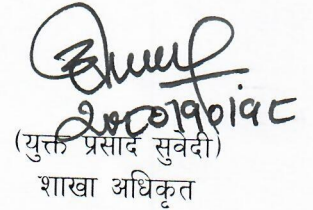 २०८०।१०।१८
(युक्त प्रसाद सुवेदी)
शाखा अधिकृत